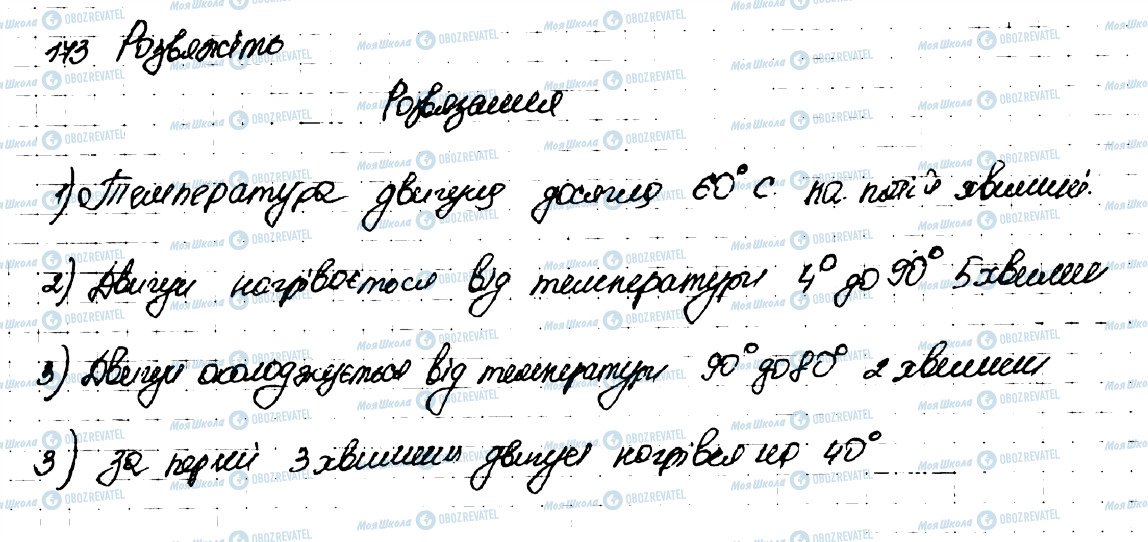 173 Розвяжіть
Розвязання
1) Температура двигуна досягла 60° С на пятій хвилині.
2) Двигун нагрівається від температури 4° до 90° 5 хвилин
3) Двигун охолоджується від температури 90° до 80° 2 хвилини
3) за перші 3 хвилини двигун нагрівся на 40°